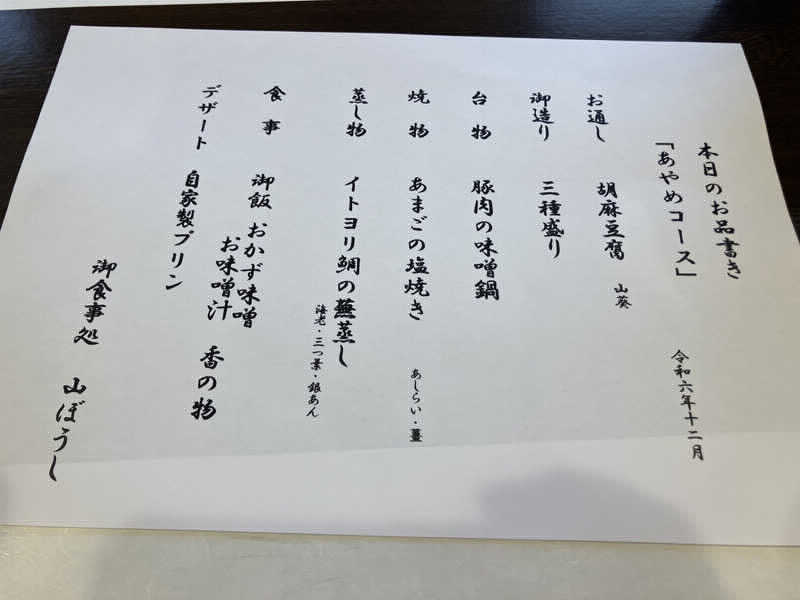 本日のお品書き
「あやめコース」
令和六年十二月
お通し 胡麻豆腐 山葵
御造り 三種盛り
台物 豚肉の味噌鍋
焼物 あまごの塩焼き あしらい・薑
蒸し物 イトヨリ鯛の蕪蒸し
海老・三つ葉・銀あん
食事 御飯 おかず味噌
お味噌汁 香の物
デザート 自家製プリン
御食事処 山ぼうし